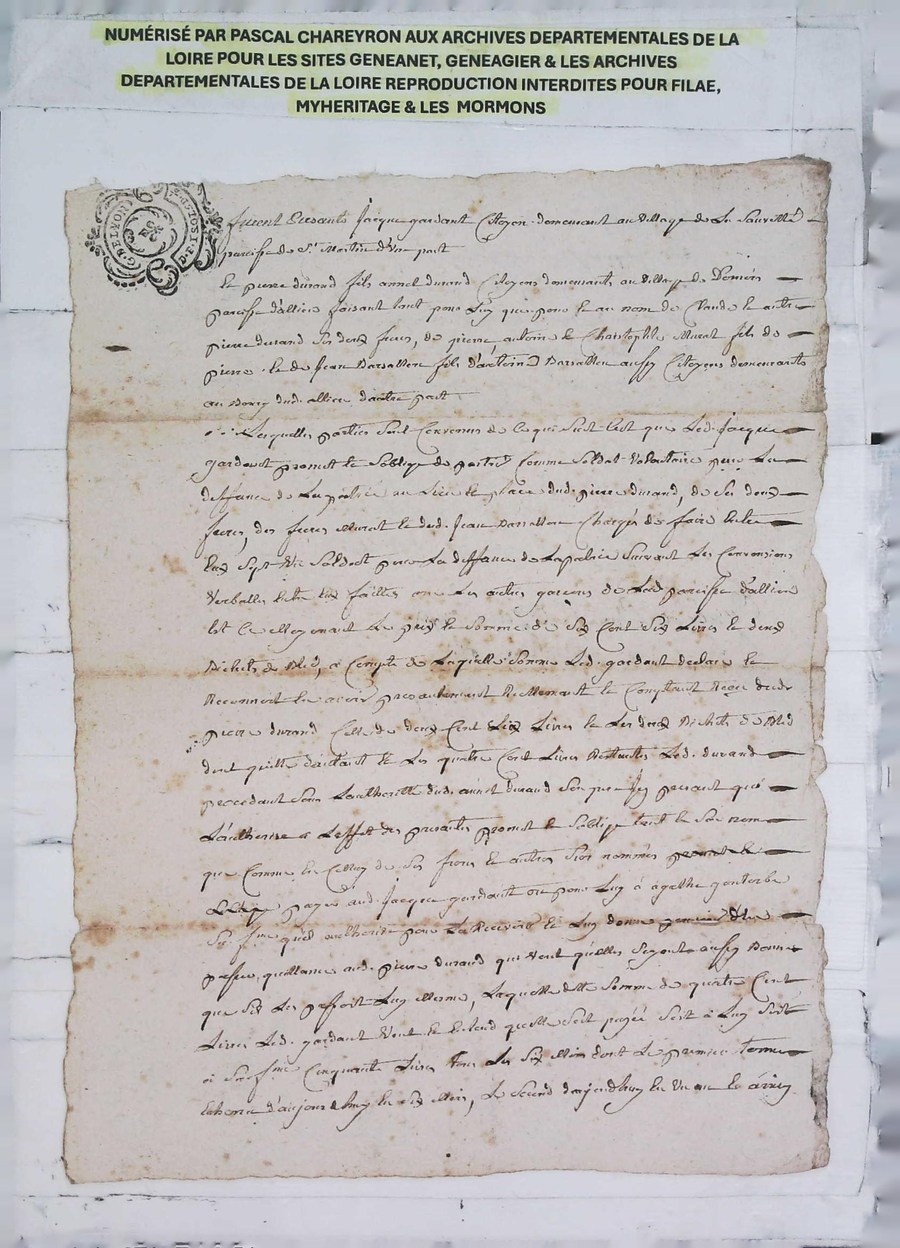 NUMÉRISÉ PAR PASCAL CHAREYRON AUX ARCHIVES DEPARTEMENTALES DE LA
LOIRE POUR LES SITES GENEANET, GENEAGIER & LES ARCHIVES
DEPARTEMENTALES DE LA LOIRE REPRODUCTION INTERDITES POUR FILAE,
MYHERITAGE & LES MORMONS
furent presants Jacque gardant Citoyen demeurant au village de la Sauvette
paroisse de St Martin d'une part
Et pierre durand fils annet durand Citoyens demeurants au village de
paroisse d'allieu faisant tant pour luy que pour et au nom de Claude et autre
pierre durand ses deux freres, de pierre antoine et Christophle Murat fils de
pierre et de Jean Darsallen fils d'antoine Darsallen aussy Citoyens demeurants
au Bourg dud. allieu d'autre part
Lesquelles parties sont Convenus de ce qui suit C'est que Led. Jacque
gardant promet et s'oblige de partir Comme Soldat Volontaire pour La
deffance de La patrie au Lieu et place dud. pierre durand, de Ses deux
freres, des freres Murat et dud. Jean Darsallen Chargés de faire
Soldat pour La deffance de La patrie Suivant Les Conventions
Verballes Entre Eux faittes ou Les autres garçons de Lad. paroisse d'allieu
Est Ce Moyenant Le prix et Somme de Six Cent Six Livres et deux
Bichets de Bled, a Compte de Laquelle Somme Led. gardant declare et
Reconnoit avoir presantement Reellement et Comptant Reçu dud.
pierre durand Celle de deux Cent Six Livres et Les deux Bichets de Bled
dont quitte d'autant et Les quatre Cent Livres Restantes Led. durand
procedant Sous L'authorité dud. annet durand Son pere Icy presant qui
L'authorise a L'effet des presantes promet et S'oblige tant en Son nom
que Comme En Celluy de Ses freres et autres Susnommés
payer aud. Jacque gardant ou pour Luy a agathe
Sa fme qu'il authorise pour La Recevoir et Luy donne
passer quittance aud. pierre durand qui Veut qu'elles Soyent aussy Bonnes
que S'il Les passoit Luy Meme, Laquelle dte Somme de quatre Cent
Livres Led. gardant Veut et Entend qu'elle Soit payée Soit a Luy Soit
a Sa fme Cinquante Livres tous Les Six Mois dont Le premier terme
Echerra d'aujourd'huy En Six Mois, Le Second d'aujourd'huy En Un an Et ainsy